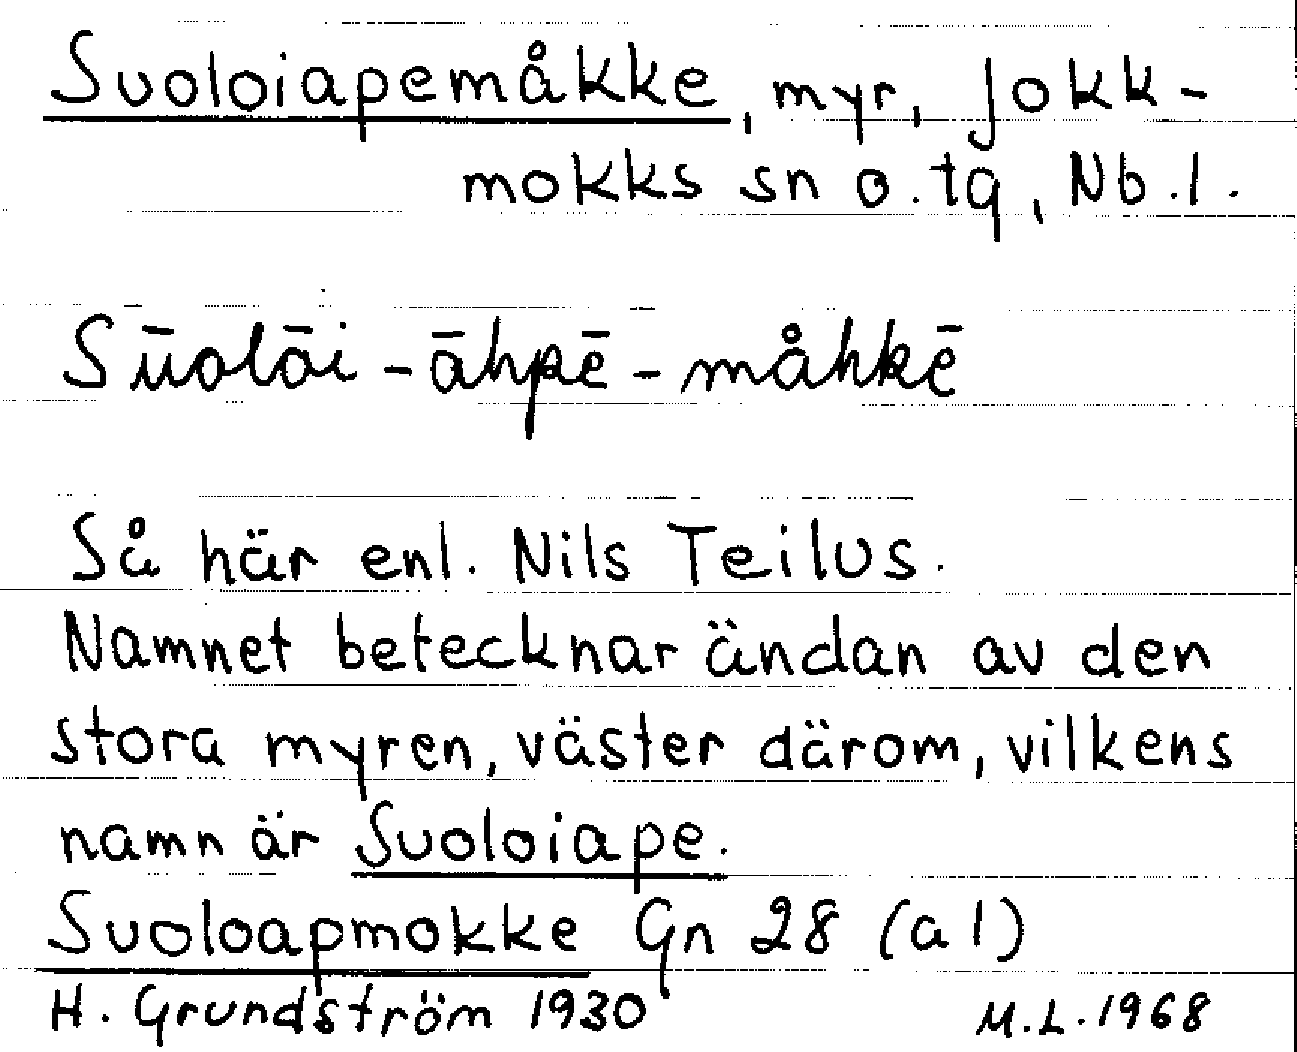 Suoloiapemåkke, myr, Jokk-
mokks sn o. tg, Nb. l.
Sūolōi-āhpē-måhkē
Så här enl. Nils Teilus.
Namnet betecknar ändan av den
stora myren, väster därom, vilkens
namn är Suoloiape.
Suoloapmokke Gn 28 (a 1)
H. Grundström 1930 M.L. 1968